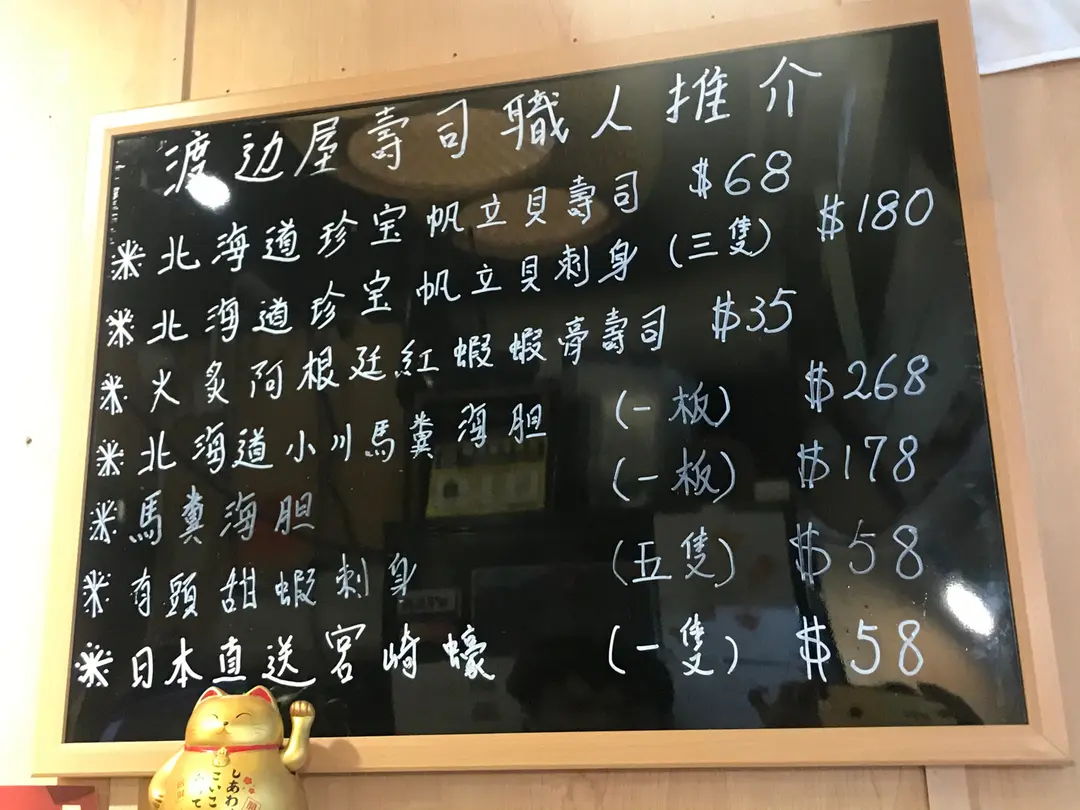 渡边屋壽司職人推介
※北海道珍宝帆立貝壽司 $68
※北海道珍宝帆立貝刺身(三隻) $180
※火炙阿根廷紅蝦蝦膏壽司 $35
※北海道小川馬糞海胆 (一板) $268
※馬糞海胆 (一板) $178
※有頭甜蝦刺身 (五隻) $58
※日本直送宮崎蠔 (一隻) $58
しあわ
こいこ